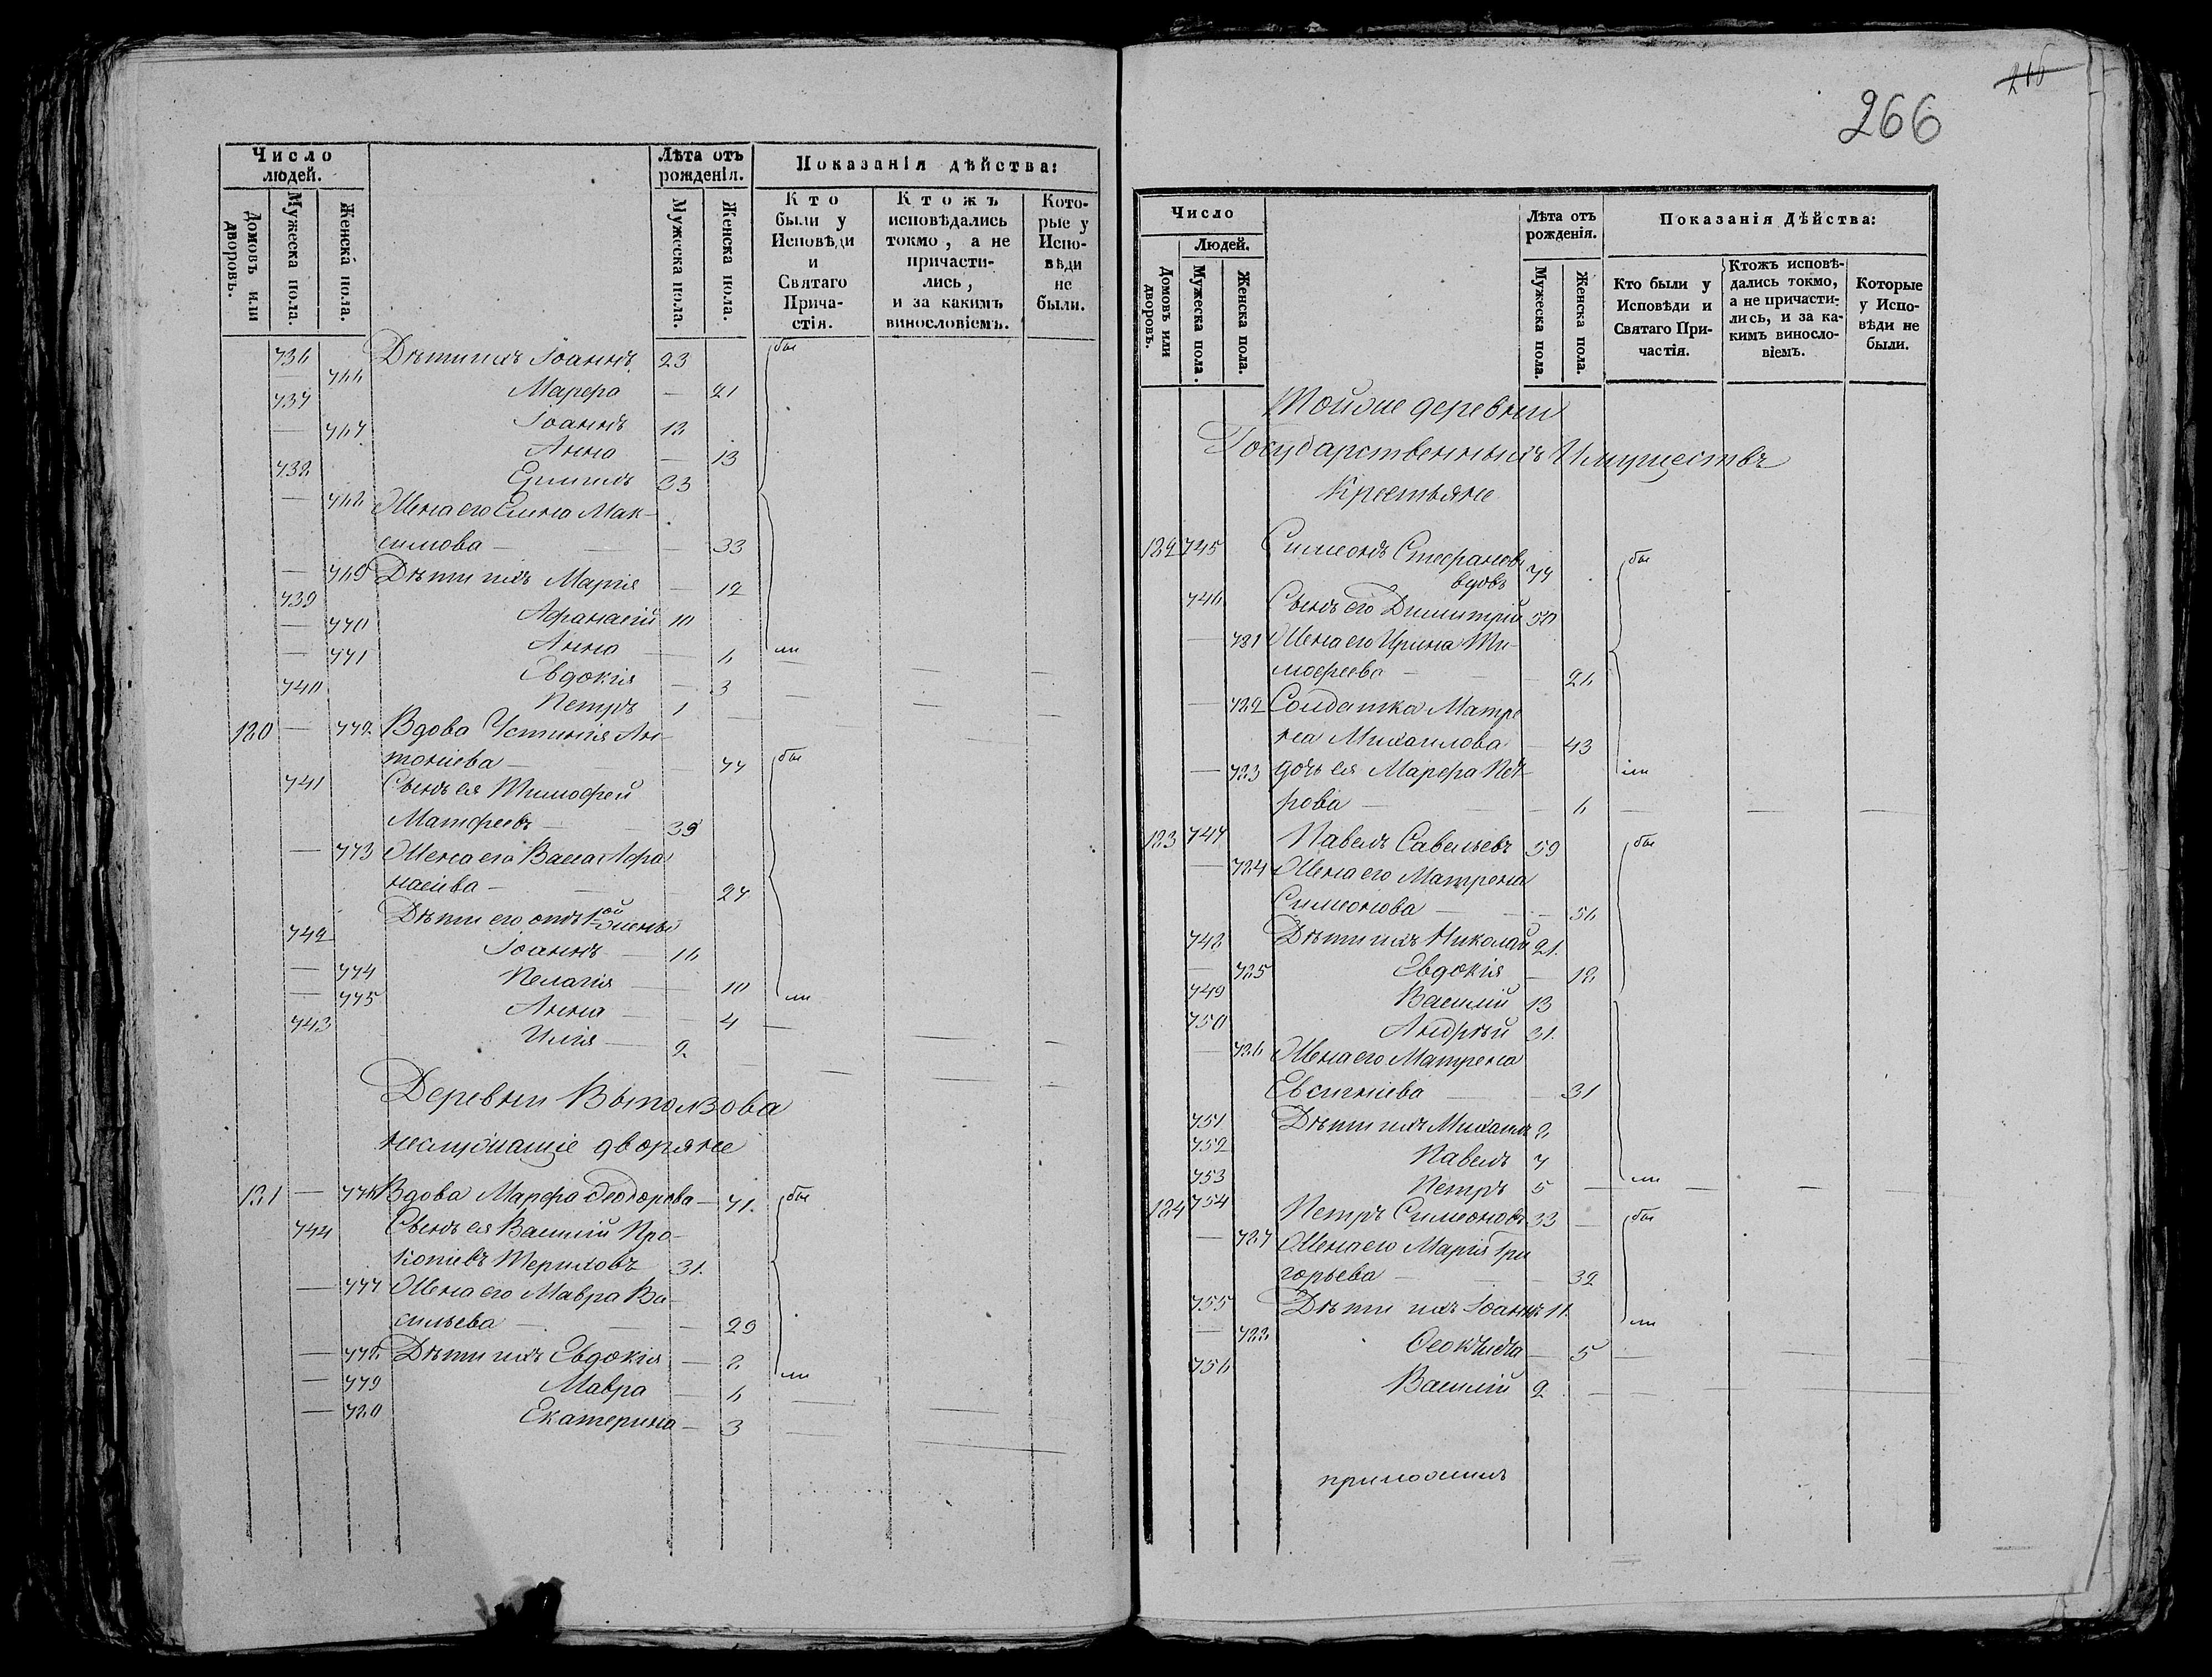 Число людей.
Лѣта отъ рожденія.
Показанія дѣйства:
Домовъ или дворовъ.
Мужеска пола.
Женска пола.
Мужеска пола.
Женска пола.
Кто были у Исповѣди и Святаго Прича-стія.
Ктожъ исповѣдались токмо, а не причасти-лись, и за какимъ винословіемъ.
Кото-рые у Испо-вѣди не были.
736 Дѣти ихъ Іоаннъ 23 бы
— 766 Марѳа — 21
737 Іоаннъ 18
— 767 Анна — 13
738 Ермилъ 33
— 768 Жена его Елена Мак-
симова — 33
— 769 Дѣти ихъ Марія — 12
739 Афанасій 10
— 770 Анна — 6 ли
— 771 Евдокія — 3
740 Петръ 1
180 — 772 Вдова Устинія Ан-
тоніева — 77 бы
741 Сынъ ея Тимофей
Матфеевъ — 39
— 773 Жена его Васса Афа
насіева — 27
Дѣти его отъ 1ой жены
742 Іоаннъ — 16
— 774 Пелагія — 10 ли
— 775 Анна — 4
743 Илія — 2
Деревни Выползова
неслужащіе дворяне
181 — 776 Вдова Марѳа Феодорова — 71. бы
744 Сынъ ея Василій Про-
копіевъ 31.
— 777 Жена его Мавра Ва-
сильева — 29
— 778 Дѣти ихъ Евдокія — 8 ли
— 779 Мавра — 6
— 780 Екатерина — 3
216
266
Число
Людей.
Лѣта отъ рожденія.
Показанія Дѣйства:
Домовъ или дворовъ.
Мужеска пола.
Женска пола.
Мужеска пола.
Женска пола.
Кто были у Исповѣди и Святаго При-частія.
Ктожъ исповѣ-дались токмо, а не причасти-лись, и за ка-кимъ виносло-віемъ.
Которые у Испо-вѣди не были.
Тойже деревни
Государственныхъ Имуществъ
Крестьяне
182 745 Симеонъ Стефановъ
вдовъ 77 бы
746 Сынъ его Димитрій 50
— 781 Жена его Ирина Ти-
мофеева — 26
— 782 Солдатка Матре
на Михаилова — 43
— 783 дочь ея Марѳа Пет- ли
рова — 6
183 747 Павелъ Савельевъ 59 бы
— 784 Жена его Матрена
Симеонова — 56
748 Дѣти ихъ Николай 21.
— 785 Евдокія — 18
749 Василій 13
750 Андрей 31.
— 786 Жена его Матрена
Евсигніева — 31
751 Дѣти ихъ Михаилъ 8
752 Павелъ 7
753 Петръ 5 ли
184 754 Петръ Симеоновъ 33 бы
— 787 Жена его Марія Гри
горьева — 32
755 Дѣти ихъ Іоаннъ 11. ли
— 788 — 5
756 Василій 2